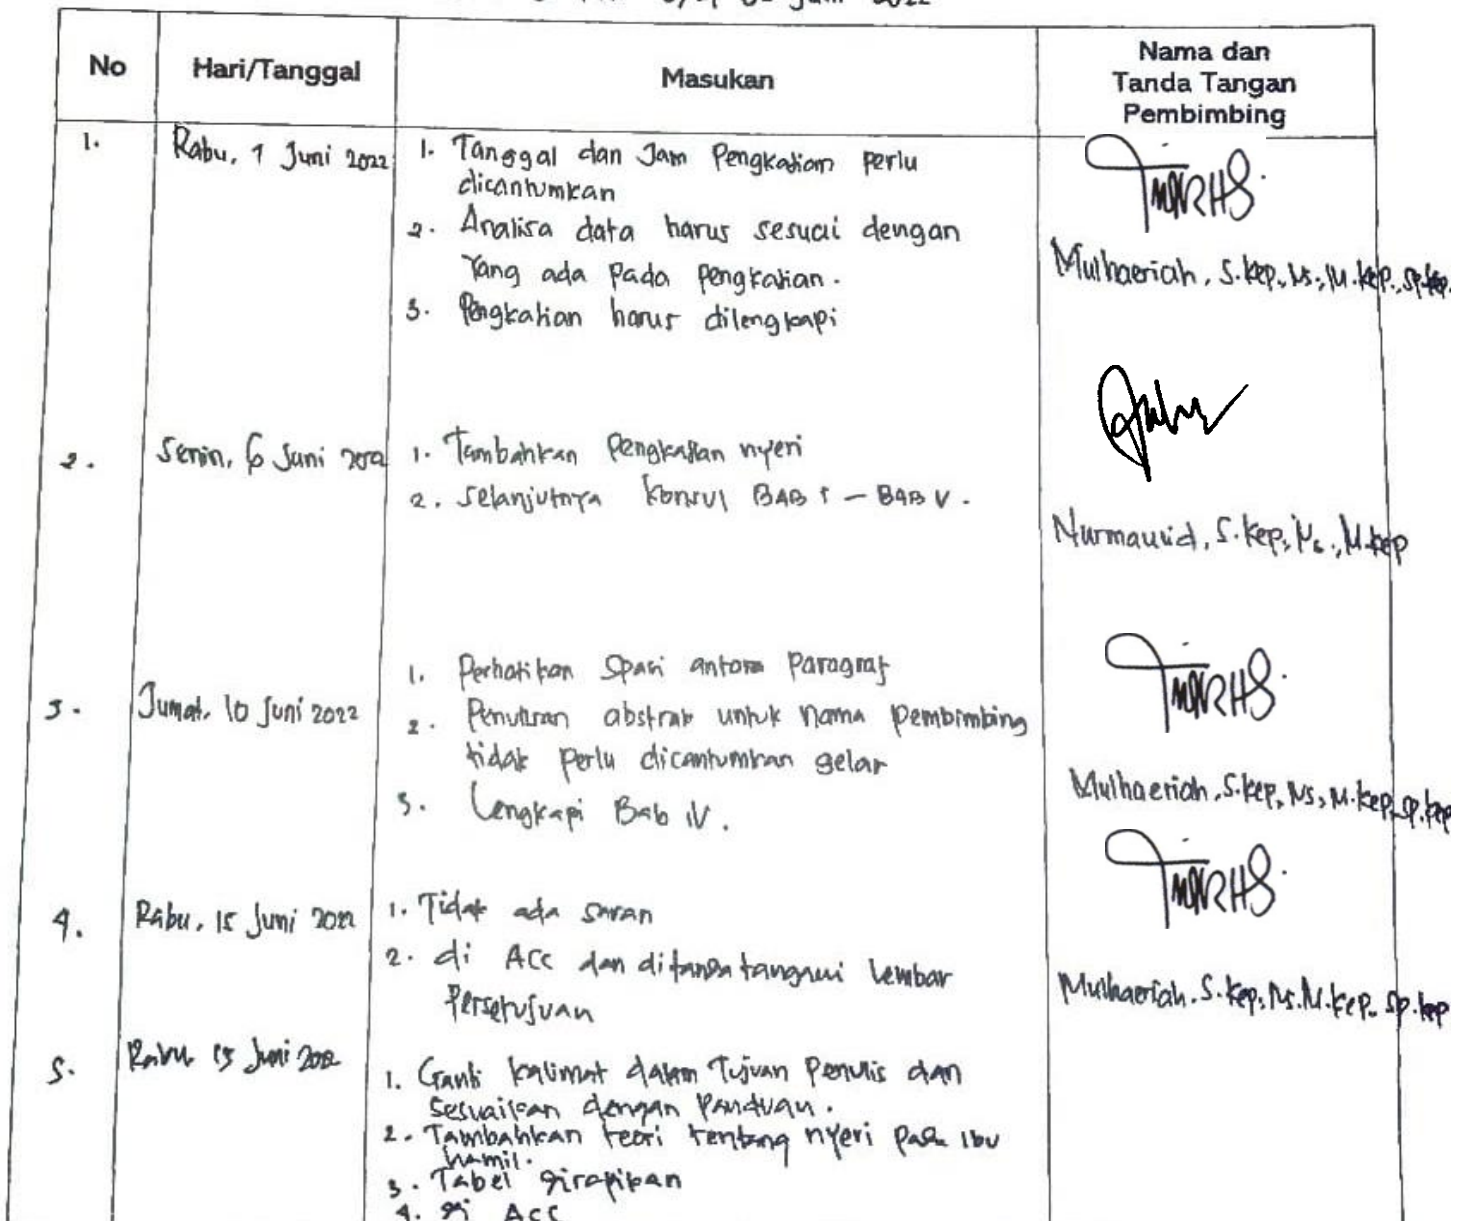 Juni 2022
No
Hari/Tanggal
Masukan
Nama dan
Tanda Tangan
Pembimbing
1.
Rabu, 1 Juni 2022
1. Tanggal dan Jam Pengkajian perlu
dicantumkan
2. Analisa data harus sesuai dengan
Yang ada pada pengkajian.
3. Pengkajian harus dilengkapi
Mulhaeriah, S.Kep., Ns., M.Kep., Sp.Kep.
2.
Senin, 6 Juni 2022
1. Tambahkan Pengkajian nyeri
2. Selanjutnya Konsul BAB I - BAB V.
S.Kep, Ns., M.Kep
3.
Jumat, 10 Juni 2022
1. Perhatikan Spasi antara Paragraf
2. Penulisan abstrak untuk Nama Pembimbing
tidak Perlu dicantumkan gelar
3. Lengkapi Bab IV.
Mulhaeriah, S.Kep, Ns, M.Kep, Sp.Kep
4.
Rabu, 15 Juni 2022
1. Tidak ada saran
2. di ACC dan ditanda tangani Lembar
Persetujuan
Mulhaeriah. S.Kep, Ns. M.Kep. Sp.Kep
5.
Rabu 15 Juni 2022
1. Ganti Kalimat dalam Tujuan Penulis dan
Sesuaikan dengan Panduan.
2. Tambahkan teori tentang nyeri pada Ibu
hamil.
3. Tabel dirapikan
4. di ACC